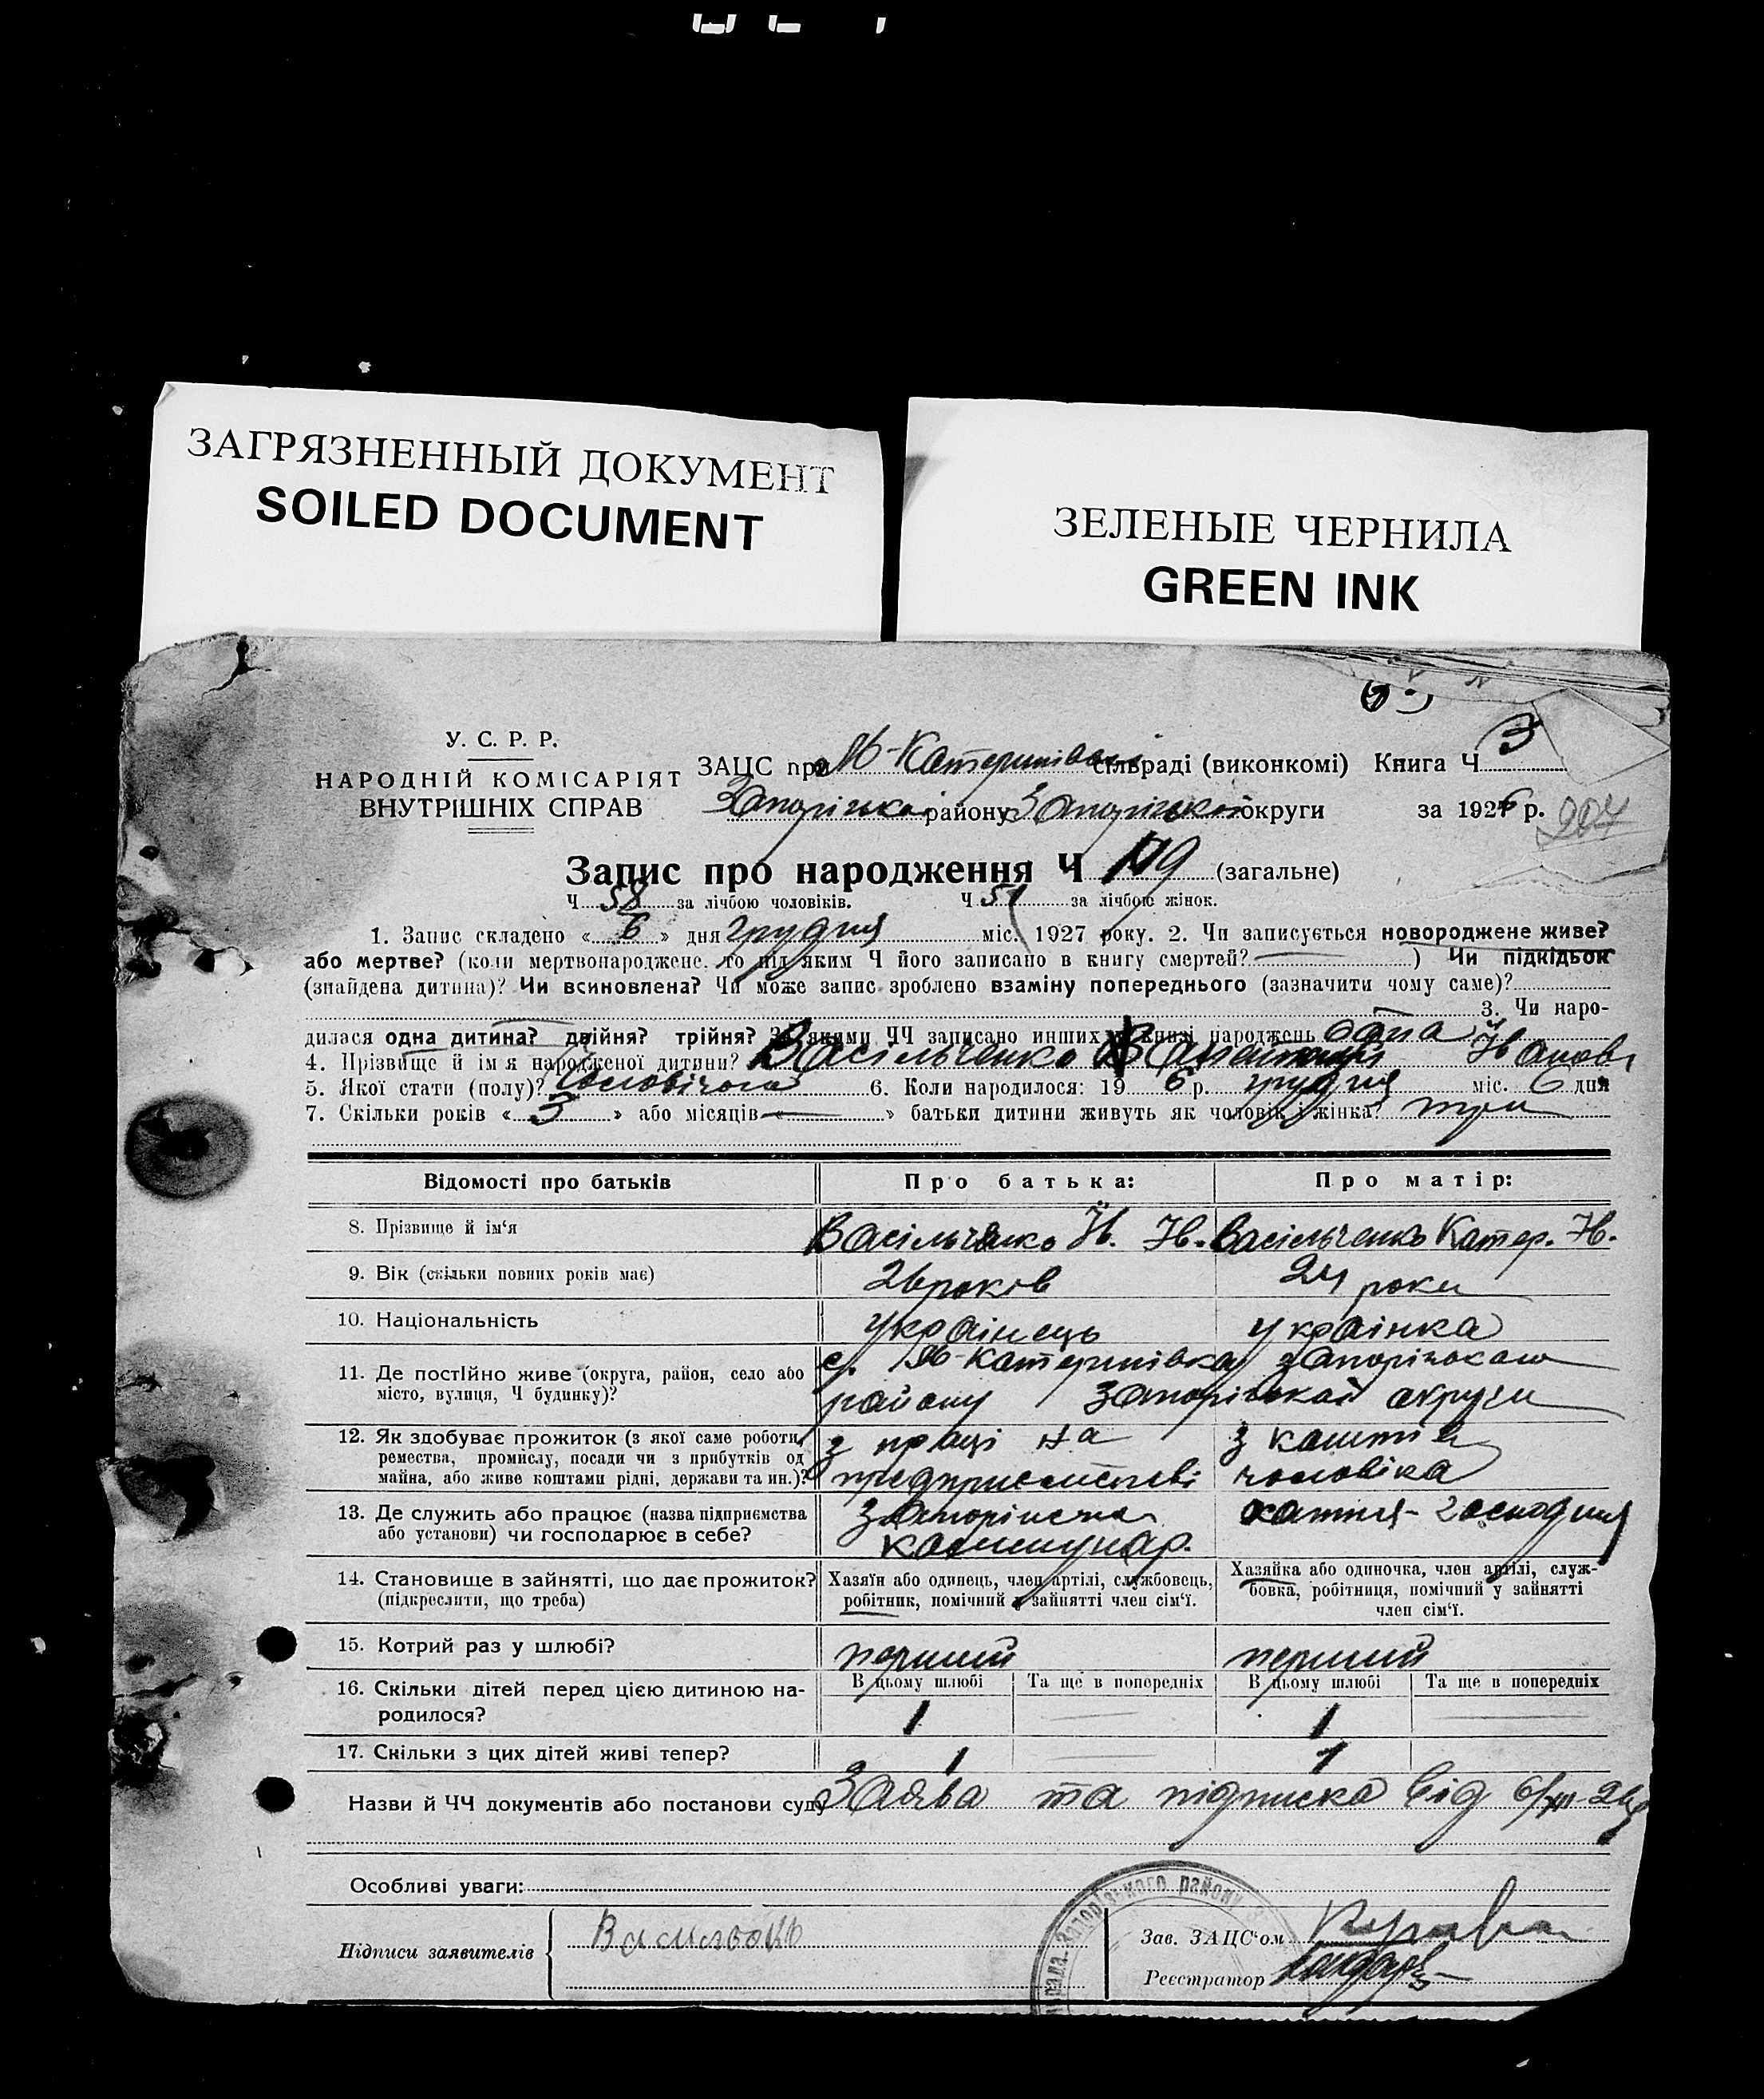 ЗАГРЯЗНЕННЫЙ ДОКУМЕНТ
SOILED DOCUMENT
ЗЕЛЕНЫЕ ЧЕРНИЛА
GREEN INK
У. С. Р. Р.
НАРОДНІЙ КОМІСАРІЯТ
ВНУТРІШНІХ СПРАВ
ЗАЦС при М-Катеринівські сільраді (виконкомі) Книга Ч 3
району округи за 1926 р. 204
Запис про народження Ч 109 (загальне)
Ч 58 за лічбою чоловіків. Ч 51 за лічбою жінок.
1. Запис складено « 6 » дня грудня міс. 1927 року. 2. Чи записується новороджене живе?
або мертве? (коли мертвонароджене, то під яким Ч його записано в книгу смертей? ) Чи підкідьок
(знайдена дитина)? Чи всиновлена? Чи може запис зроблено взаміну попереднього (зазначити чому саме)?
3. Чи наро-
дилася одна дитина? двійня? трійня? За якими ЧЧ записано инших в книзі народжень одна
4. Прізвище й ім'я народженої дитини? Васільченко Іванов
5. Якої стати (полу)? Чоловічого 6. Коли народилося: 19 6 р. грудня міс. 6 дня
7. Скільки років « 3 » або місяців « » батьки дитини живуть як чоловік і жінка? три
Відомості про батьків
Про батька:
Про матір:
8. Прізвище й ім'я
Васільченко Ів. Ів.
Васільченко Катер. Ів.
9. Вік (скільки повних років має)
26 років
24 роки
10. Національність
українець
українка
11. Де постійно живе (округа, район, село або
місто, вулиця, Ч будинку)?
с. М-Катеринівка Запорізького
району Запорізької округи
12. Як здобуває прожиток (з якої саме роботи,
ремества, промислу, посади чи з прибутків од
майна, або живе коштами рідні, держави та ин.)?
з праці на
з коштів
чоловіка
13. Де служить або працює (назва підприємства
або установи) чи господарює в себе?
комунар.
хатня-господиня
14. Становище в зайнятті, що дає прожиток?
(підкреслити, що треба)
Хазяїн або одинець, член артілі, службовець,
робітник, помічний у зайнятті член сім'ї.
Хазяйка або одиночка, член артілі, служ-
бовка, робітниця, помічний у зайнятті
член сім'ї.
15. Котрий раз у шлюбі?
перший
перший
16. Скільки дітей перед цією дитиною на-
родилося?
В цьому шлюбі Та ще в попередніх В цьому шлюбі Та ще в попередніх
1 1
17. Скільки з цих дітей живі тепер?
1 1
Назви й ЧЧ документів або постанови суду Заява та підписка від 6/XII-26р
Особливі уваги:
Підписи заявителів
Зав. ЗАЦС'ом
Реєстратор
рада Запорізького району